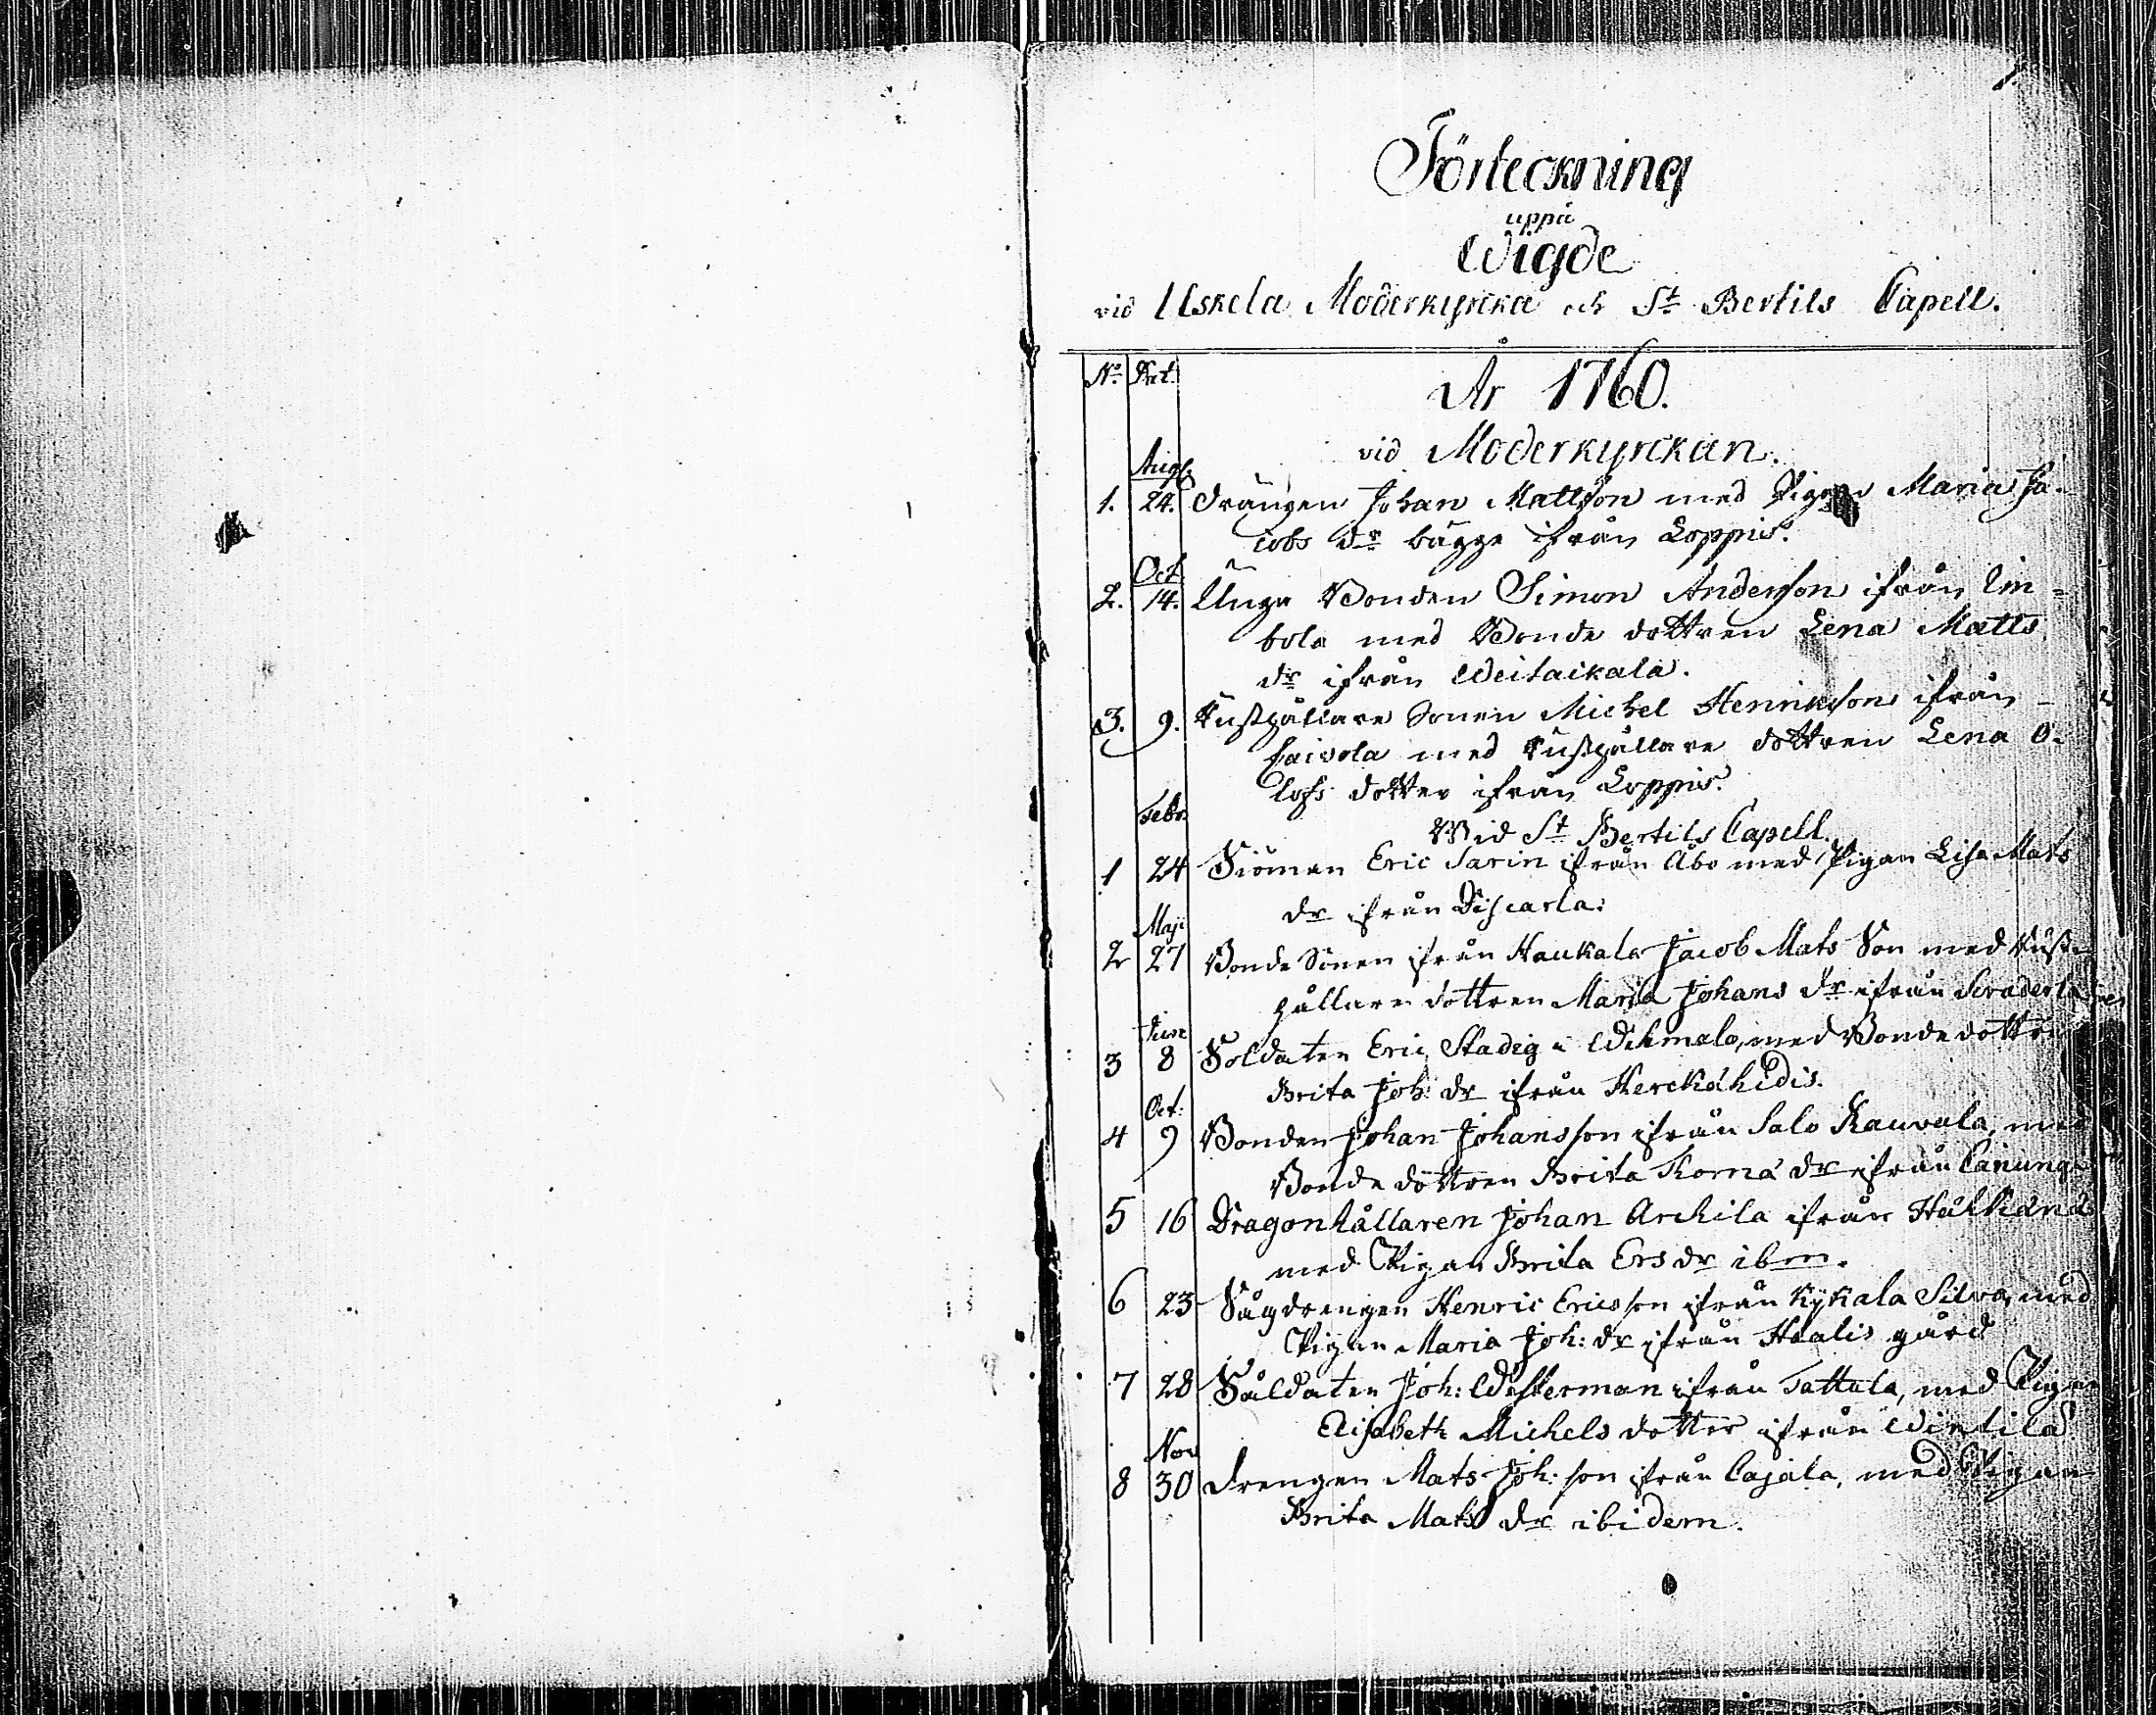 Förteckning
uppå
Wigde
vid Uskela Moderkyrcka och St Bertils Capell.
No. Dat.
År 1760.
vid Moderkyrckan.
Aug.
1. 24. Drängen Johan Mattsson med Pigan Maria Ja-
cobs dr bägge ifrån Loppis.
Oct.
2. 14. Unga Bonden Simon Andersson ifrån
bola med Bonde dottren Lena Matts
dr ifrån Weitaickala.
3. 9. Rusthållare Sonen Michel Henricsson ifrån
med Rusthållare dottren Lena O-
lofs dotter ifrån Loppis.
Febr.
Wid St Bertils Capell.
1 24 Siöman Eric Sarin ifrån Åbo med Pigan Lisa Mats
dr ifrån
Maji
2 27 Bonde Sonen ifrån Haukala Jacob Mats Son med Rust-
hållare dottren Maria Johans dr ifrån
Juni
3 8 Soldaten Eric Stadig i med Bonde dottren
Brita Joh: dr ifrån
Oct:
4 9 Bonden Johan Johansson ifrån Salo Kauvala, med
Bonde dottren Brita dr ifrån
5 16 Dragonhållaren Johan Archila ifrån
med Pigan Brita Ers dr ibm.
6 23 Sågdrengen Henric Ericsson ifrån Kykala Silwo, med
Pigan Maria Joh: dr ifrån Haalis gård
7 28 Såldaten Joh: Westerman ifrån Tattula, med Pigan
Elisabeth Michels dotter ifrån Wintilä
Nov
8 30 Drengen Mats Joh: son ifrån Cajala, med Pigan
Brita Mats dr ibidem.